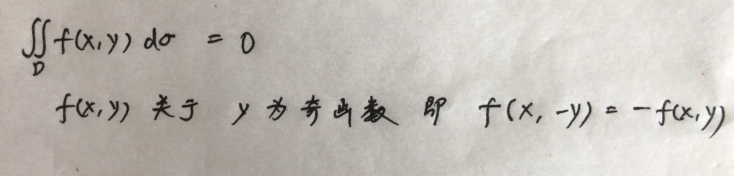 ∬_D f(x,y) dσ = 0
f(x,y) 关于 y 为奇函数 即 f(x,-y) = -f(x,y)